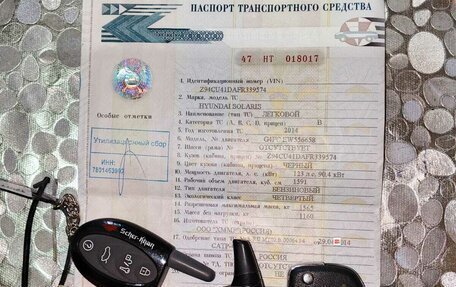 ПАСПОРТ ТРАНСПОРТНОГО СРЕДСТВА
47 НТ 018017
1. Идентификационный номер (VIN)
Z94CU41DAFR339574
2. Марка, модель ТС
HYUNDAI SOLARIS
3. Наименование (тип ТС) ЛЕГКОВОЙ
Особые отметки
4. Категория ТС (А, В, С, D, прицеп) В
5. Год изготовления ТС 2014
6. Модель, № двигателя G4FC
7. Шасси (рама) № ОТСУТСТВУЕТ
8. Кузов (кабина, прицеп) № Z94CU41DAFR339574
9. Цвет кузова (кабины, прицепа) ЧЕРНЫЙ
10. Мощность двигателя, л. с. (кВт) 123 л.с. 90.4 кВт
11. Рабочий объем двигателя, куб. см 1591
12. Тип двигателя БЕНЗИНОВЫЙ
13. Экологический класс ЧЕТВЕРТЫЙ
14. Разрешенная максимальная масса, кг
15. Масса без нагрузки, кг 1160
Утилизационный сбор
ИНН:
16.
17. Одобрение типа ТС №
РОССИЯ
Scher-Khan